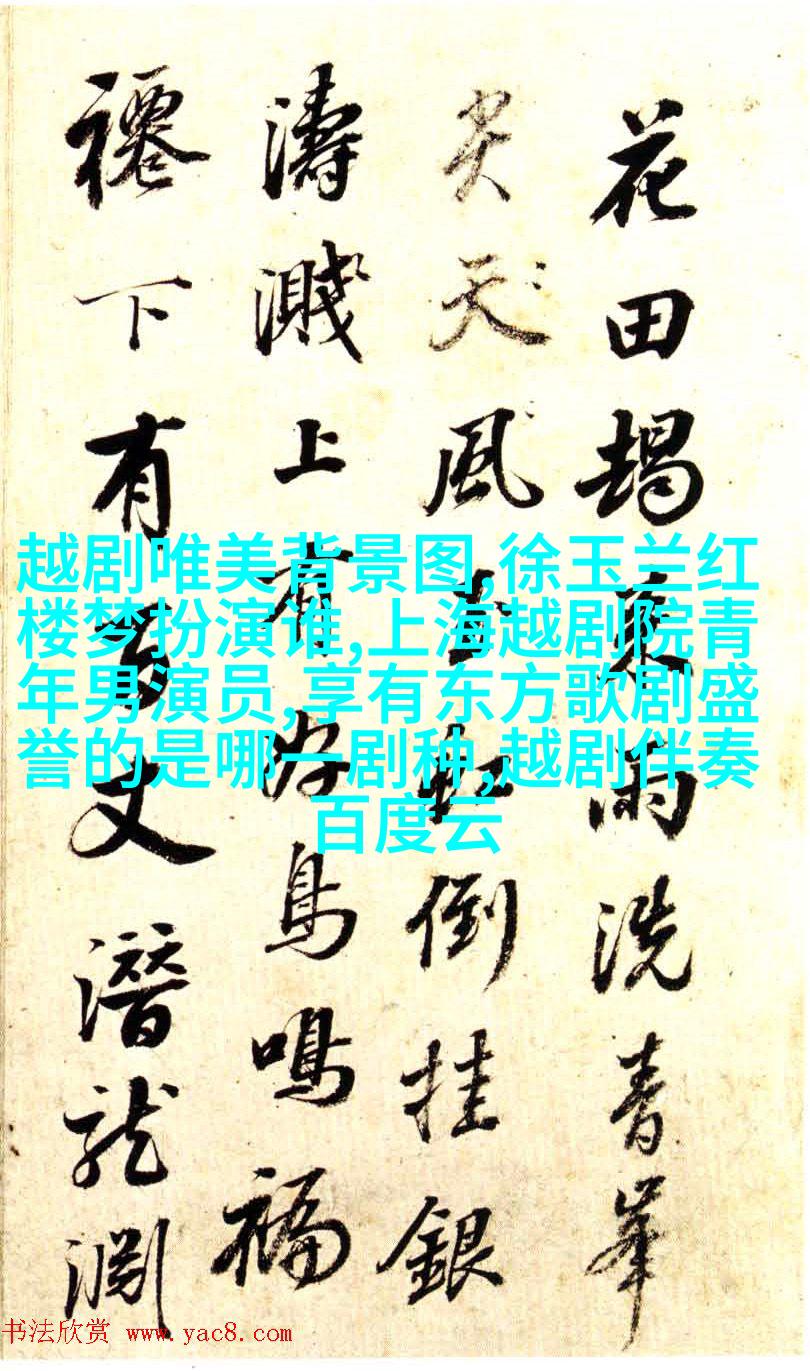 花田朅來雨洗青峯
尖天風吹虹倒挂銀
濤濺上有好鳥鳴福
下有百丈潛龍淵
越剧唯美背景图,徐玉兰红
楼梦扮演谁,上海越剧院青
年男演员,享有东方歌剧盛
誉的是哪一剧种,越剧伴奏
百度云
书法欣赏 www.yac8.com